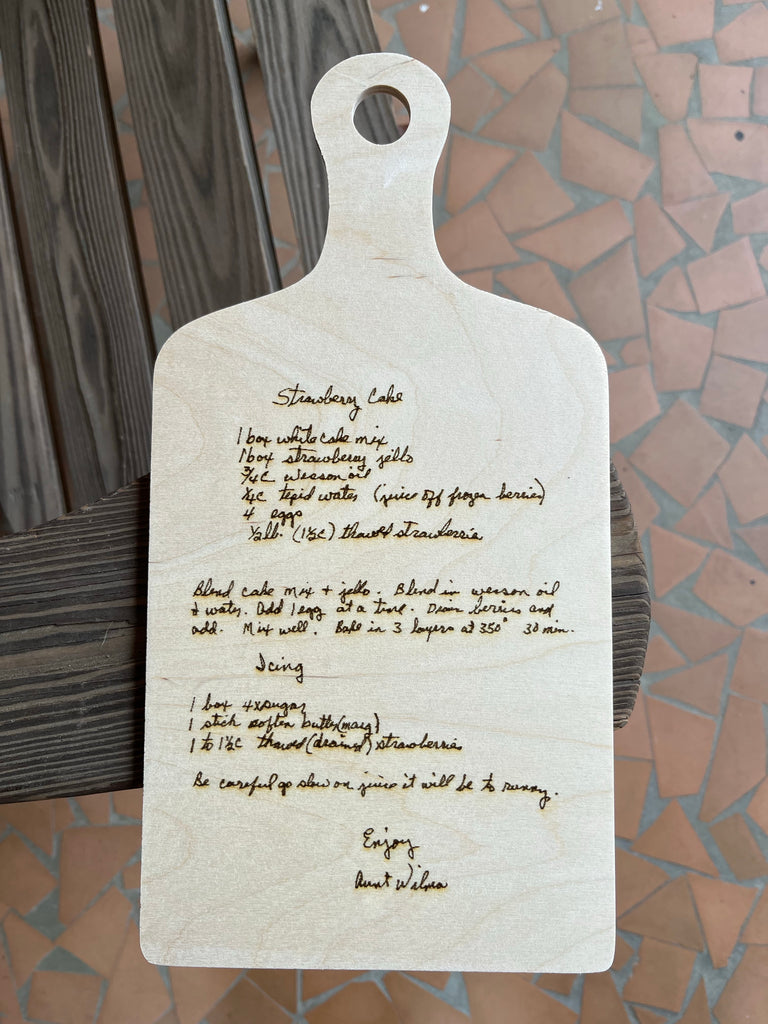 Strawberry Cake
1 box white cake mix
1 box strawberry jello
3/4 c wesson oil
1/4 c tepid water (juice off frozen berries)
4 eggs
1/2 lb. (1 1/2 c) thawed strawberries
Blend cake mix + jello. Blend in wesson oil
+ water. Add 1 egg at a time. Drain berries and
add. Mix well. Bake in 3 layers at 350° 30 min.
Icing
1 box 4x sugar
1 stick soften butter (marg)
1 to 1 1/2 c thawed (drained) strawberries
Be careful go slow on juice it will be to runny.
Enjoy
Aunt Wilma